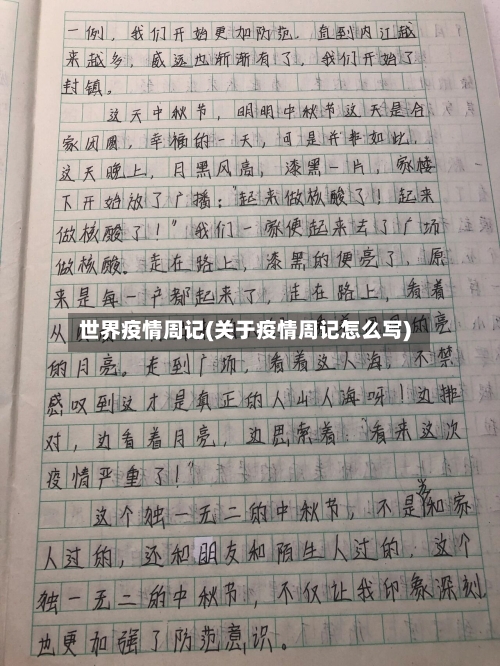 一例，我们开始更加防范。直到内江越
来越多，威远也渐渐有了，我们开始了
封镇。
这天中秋节，明明中秋节这天是合
家团圆，幸福的一天，可是并非如此，
这天晚上，月黑风高，漆黑一片，家楼
下开始放了广播："起来做核酸了！起来
做核酸了！"我们一家便起来去了广场
做核酸。走在路上，漆黑的便亮了，原
来是每一户都起来了，走在路上，看着
世界疫情周记(关于疫情周记怎么写)
从 的亮
的月亮。走到广场，看着这人海，不禁
感叹到这才是真正的人山人海呀！边排
对，边看着月亮，边思索着："看来这次
疫情严重了！"
这个独一无二的中秋节，不是和家
人过的，还和朋友和陌生人过的，这个
独一无二的中秋节，不仅让我印象深刻
也更加强了防范意识。